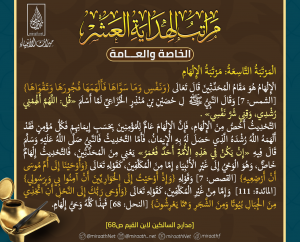 مراتب الهداية العشر
الخاصة والعامة
ميراث الأنبياء
المَرْتَبَةُ التَّاسِعَةُ: مَرْتَبَةُ الإِلْهَامِ
الإِلْهَامُ هُوَ مَقَامُ المُحَدَّثِينَ قَالَ تَعَالَى {وَنَفْسٍ وَمَا سَوَّاهَا فَأَلْهَمَهَا فُجُورَهَا وَتَقْوَاهَا}
[الشمس: 7] وَقَالَ النَّبِيُّ ﷺ لِحُصَيْنِ بْنِ مُنْذِرٍ الخُزَاعِيِّ لَمَّا أَسْلَمَ «قُلِ: اللَّهُمَّ أَلْهِمْنِي
رُشْدِي، وَقِنِي شَرَّ نَفْسِي».
التَّحْدِيثُ أَخَصُّ مِنَ الإِلْهَامِ، فَإِنَّ الإِلْهَامَ عَامٌّ لِلْمُؤْمِنِينَ بِحَسَبِ إِيمَانِهِمْ فَكُلُّ مُؤْمِنٍ فَقَدْ
أَلْهَمَهُ اللَّهُ رُشْدَهُ الَّذِي حَصَلَ لَهُ بِهِ الإِيمَانُ، فَأَمَّا التَّحْدِيثُ فَالنَّبِيُّ صَلَّى اللَّهُ عَلَيْهِ وَسَلَّمَ
قَالَ فِيهِ «إِنْ يَكُنْ فِي هَذِهِ الأُمَّةِ أَحَدٌ فَعُمَرُ» يَعْنِي مِنَ المُحَدَّثِينَ، فَالتَّحْدِيثُ إِلْهَامٌ
خَاصٌّ، وَهُوَ الوَحْيُ إِلَى غَيْرِ الأَنْبِيَاءِ إِمَّا مِنَ المُكَلَّفِينَ، كَقَوْلِهِ تَعَالَى {وَأَوْحَيْنَا إِلَى أُمِّ مُوسَى
أَنْ أَرْضِعِيهِ} [القصص: 7] وَقَوْلِهِ {وَإِذْ أَوْحَيْتُ إِلَى الحَوَارِيِّينَ أَنْ آمِنُوا بِي وَبِرَسُولِي}
[المائدة: 111] وَإِمَّا مِنْ غَيْرِ المُكَلَّفِينَ، كَقَوْلِهِ تَعَالَى {وَأَوْحَى رَبُّكَ إِلَى النَّحْلِ أَنِ اتَّخِذِي
مِنَ الجِبَالِ بُيُوتًا وَمِنَ الشَّجَرِ وَمِمَّا يَعْرِشُونَ} [النحل: 68] فَهَذَا كُلُّهُ وَحْيُ إِلْهَامٍ.
[مدارج السالكين لابن القيم ص68]
@miraathNet @miraathNet @miraathI